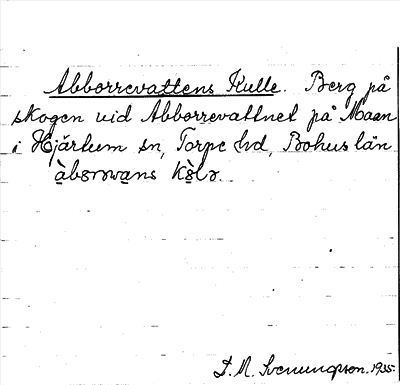 Abborrevattens Kulle. Berg på
skogen vid Abborrevattnet på Maan
i Hjärtum sn, Torpe hd, Bohus län
àborəwans kòlə.
D. M. Svenungsson. 1935.